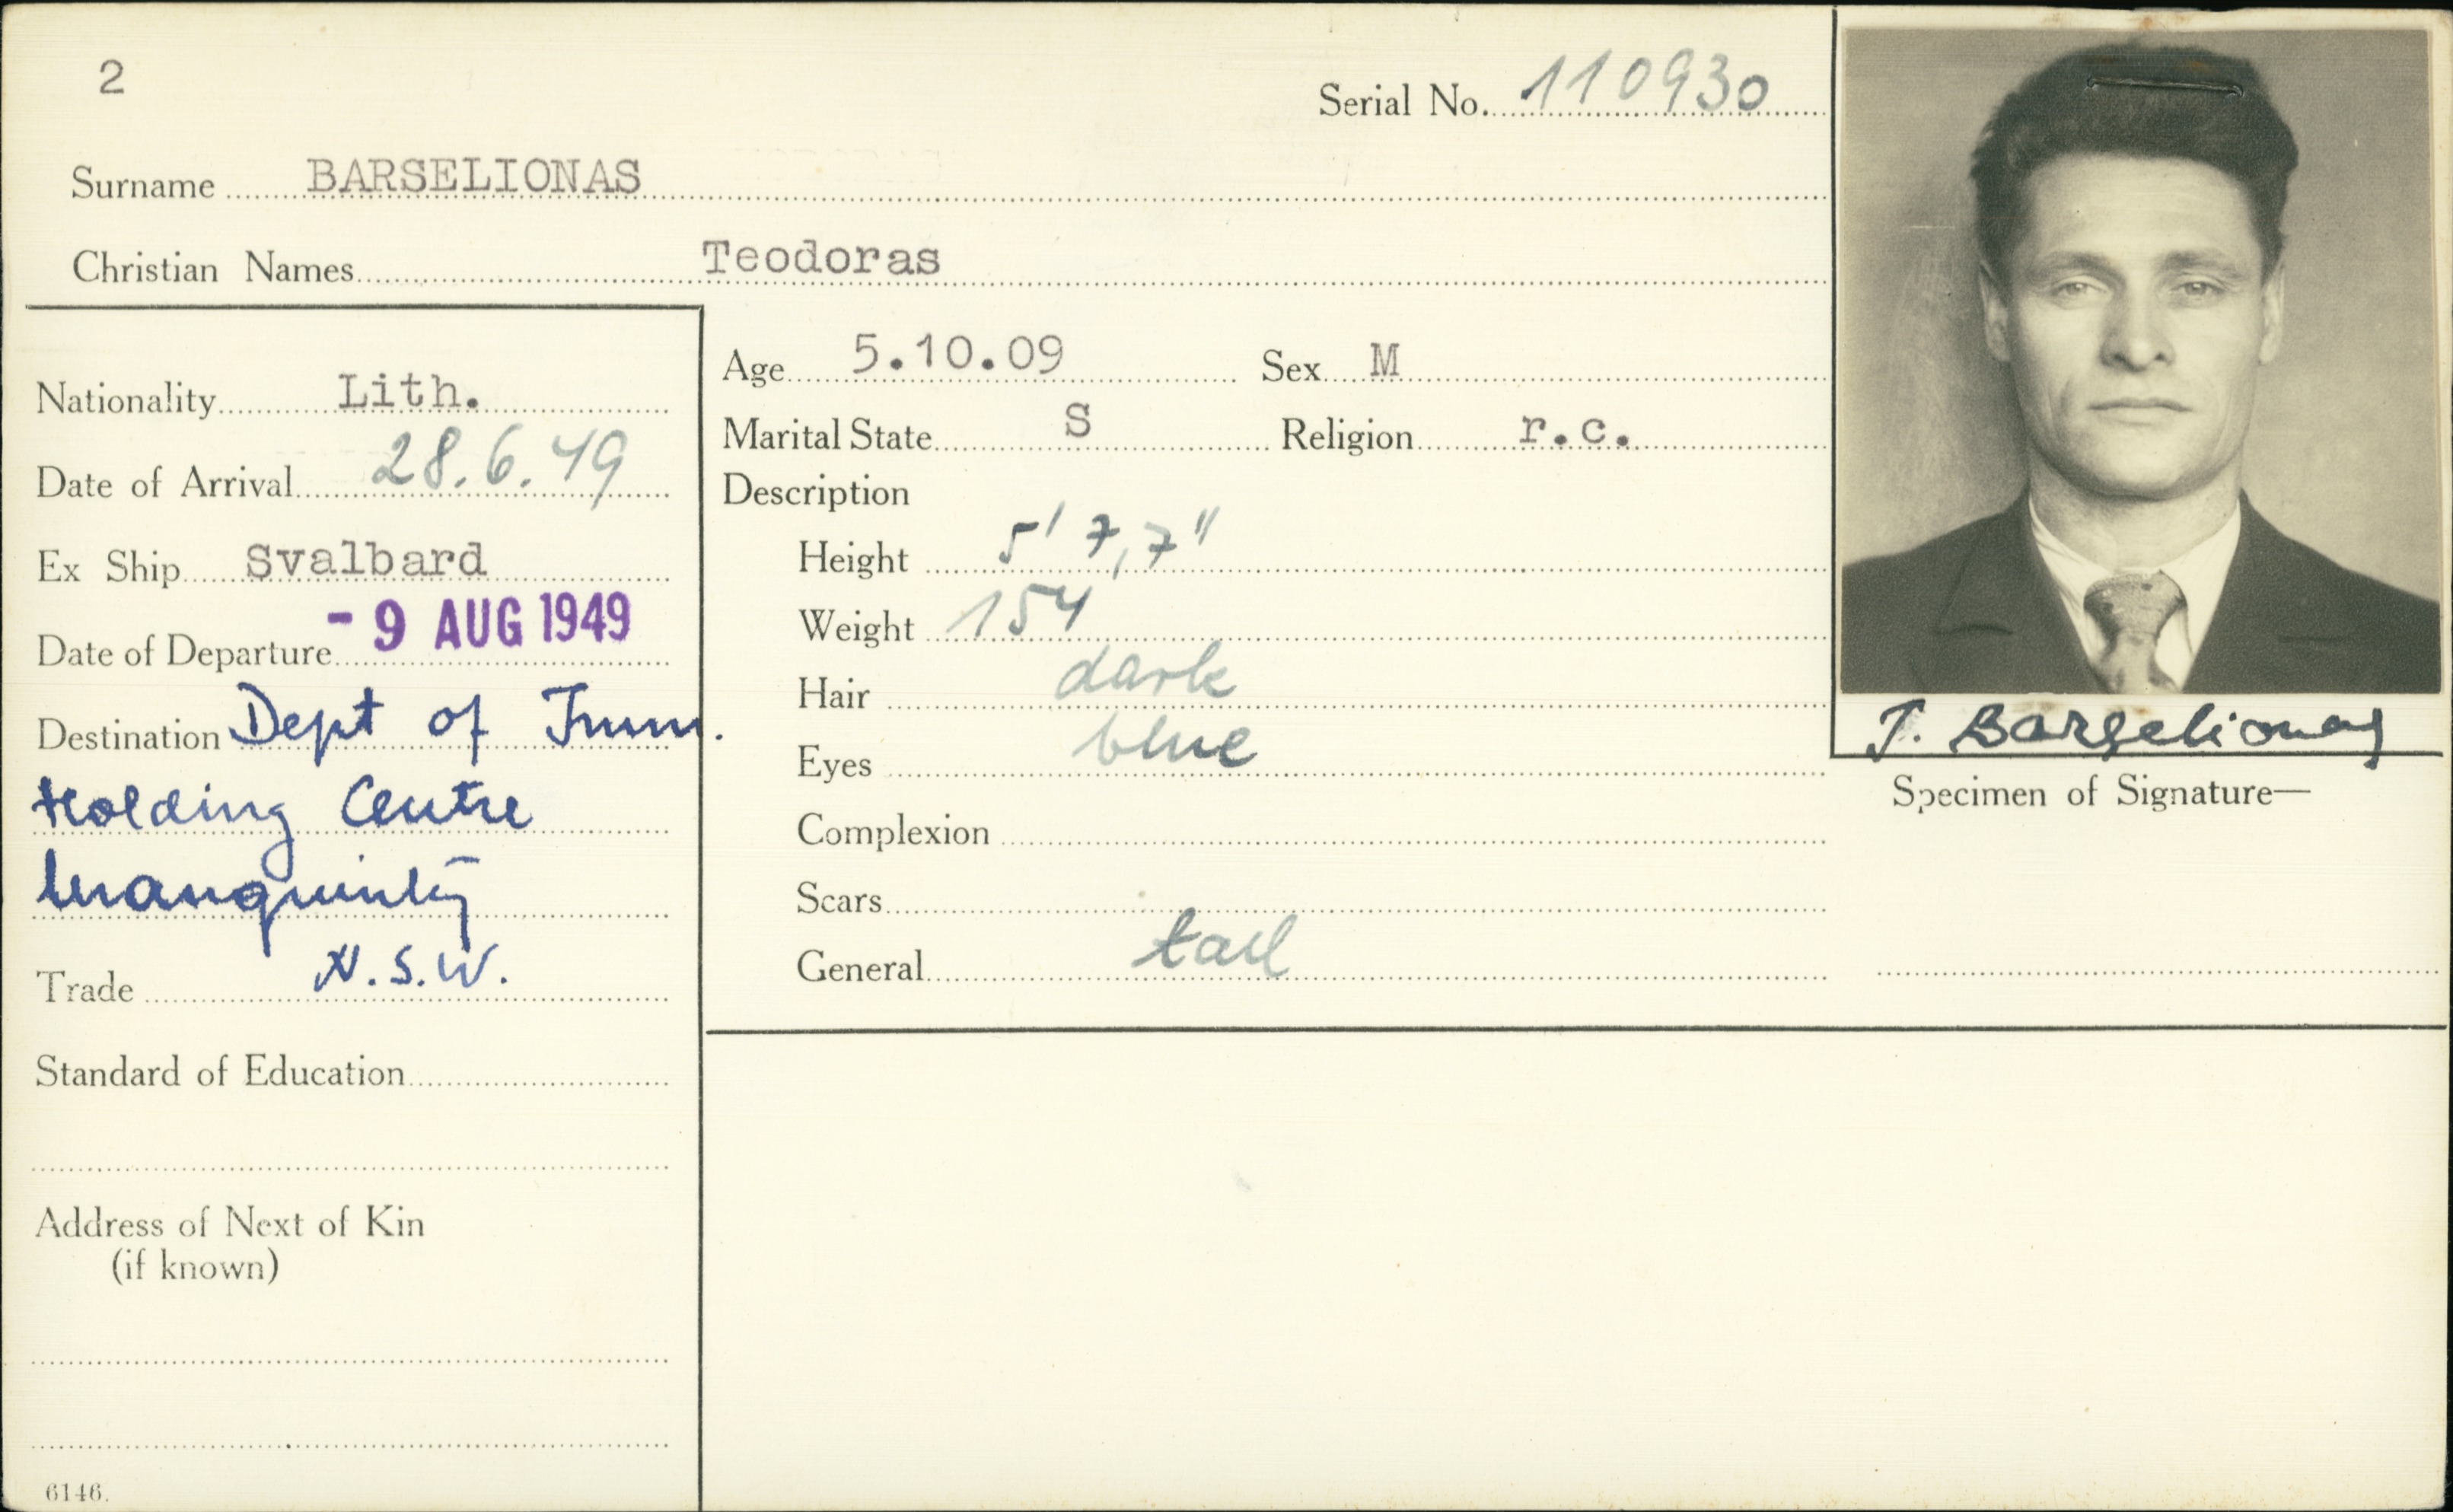 2
Serial No. 110930
Surname BARSELIONAS
Christian Names Teodoras
Nationality Lith.
Date of Arrival 28.6.49
Ex Ship Svalbard
Date of Departure - 9 AUG 1949
Destination Dept of Imm.
Holding Centre
Uranquinty
N.S.W.
Trade
Standard of Education
Address of Next of Kin
(if known)
6146.
Age 5.10.09 Sex M
Marital State S Religion r.c.
Description
Height 5' 7,7"
Weight 154
Hair dark
Eyes blue
Complexion
Scars
General tall
T. Barselionas
Specimen of Signature—